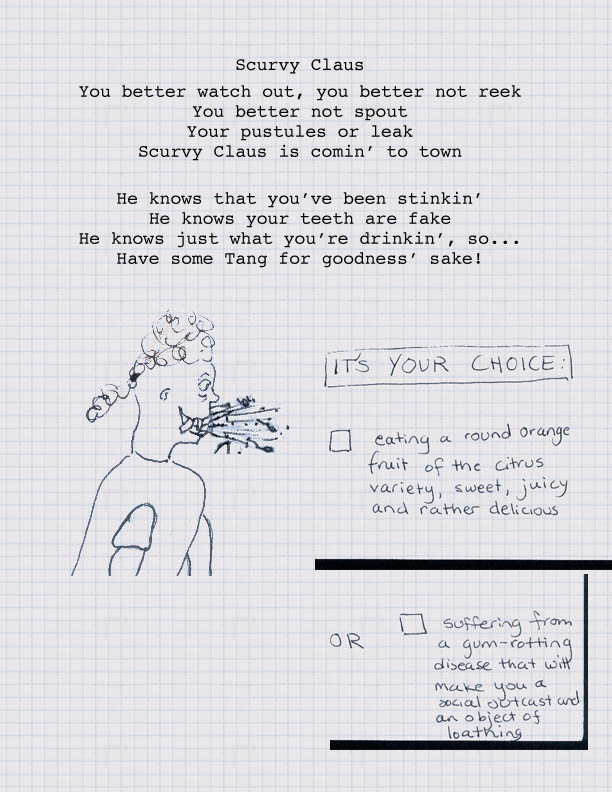 Scurvy Claus
You better watch out, you better not reek
You better not spout
Your pustules or leak
Scurvy Claus is comin' to town
He knows that you've been stinkin'
He knows your teeth are fake
He knows just what you're drinkin', so...
Have some Tang for goodness' sake!
IT'S YOUR CHOICE:
eating a round orange
fruit of the citrus
variety, sweet, juicy
and rather delicious
OR
suffering from
a gum-rotting
disease that will
make you a
social outcast and
an object of
loathing